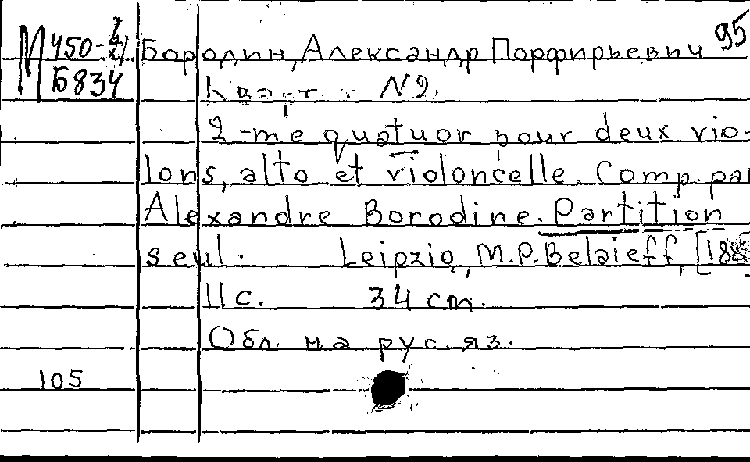 95
М 450-2/х
Б834
Бородин, Александр Порфирьевич
Кварт. №2.
2-me quatuor pour deux vio-
lons, alto et violoncelle. Comp. par
Alexandre Borodine. Partition
seul. Leipzig, M.P. Belaieff, [188
11 с. 34 cm.
Обл. на рус. яз.
105